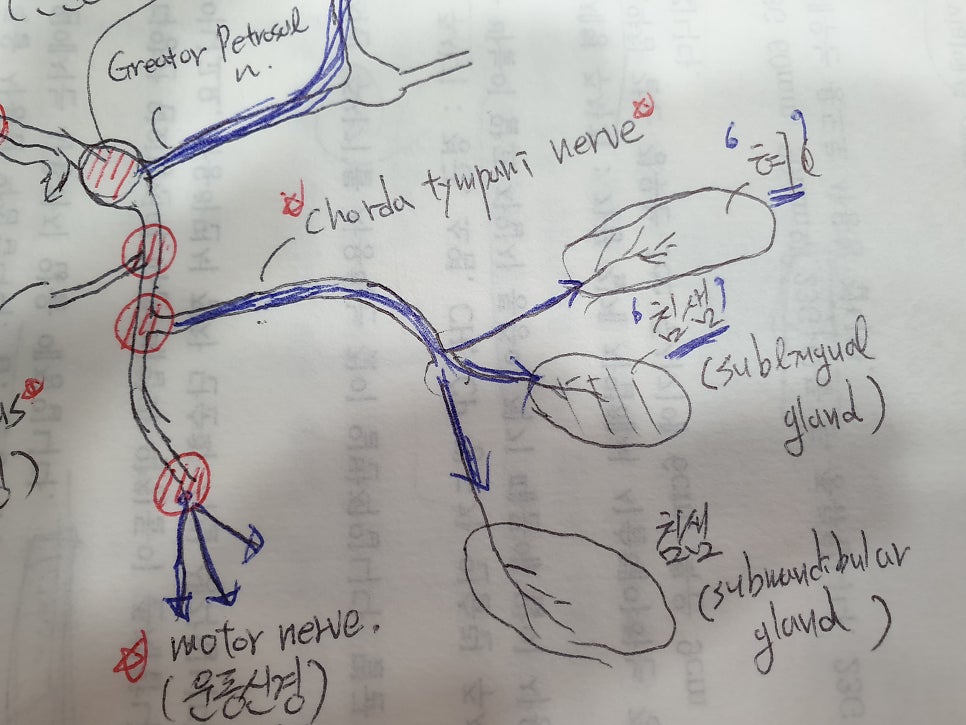 Greator Petrosal
n.
chorda tympani nerve
혀
침샘
(sublingual
gland)
침샘
(submandibular
gland)
motor nerve.
(운동신경)